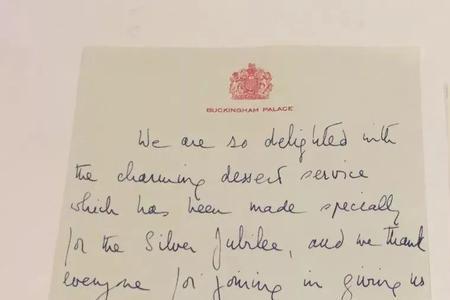 BUCKINGHAM PALACE
We are so delighted with
the charming dessert service
which has been made specially
for the Silver Jubilee, and we thank
everyone for joining in giving us